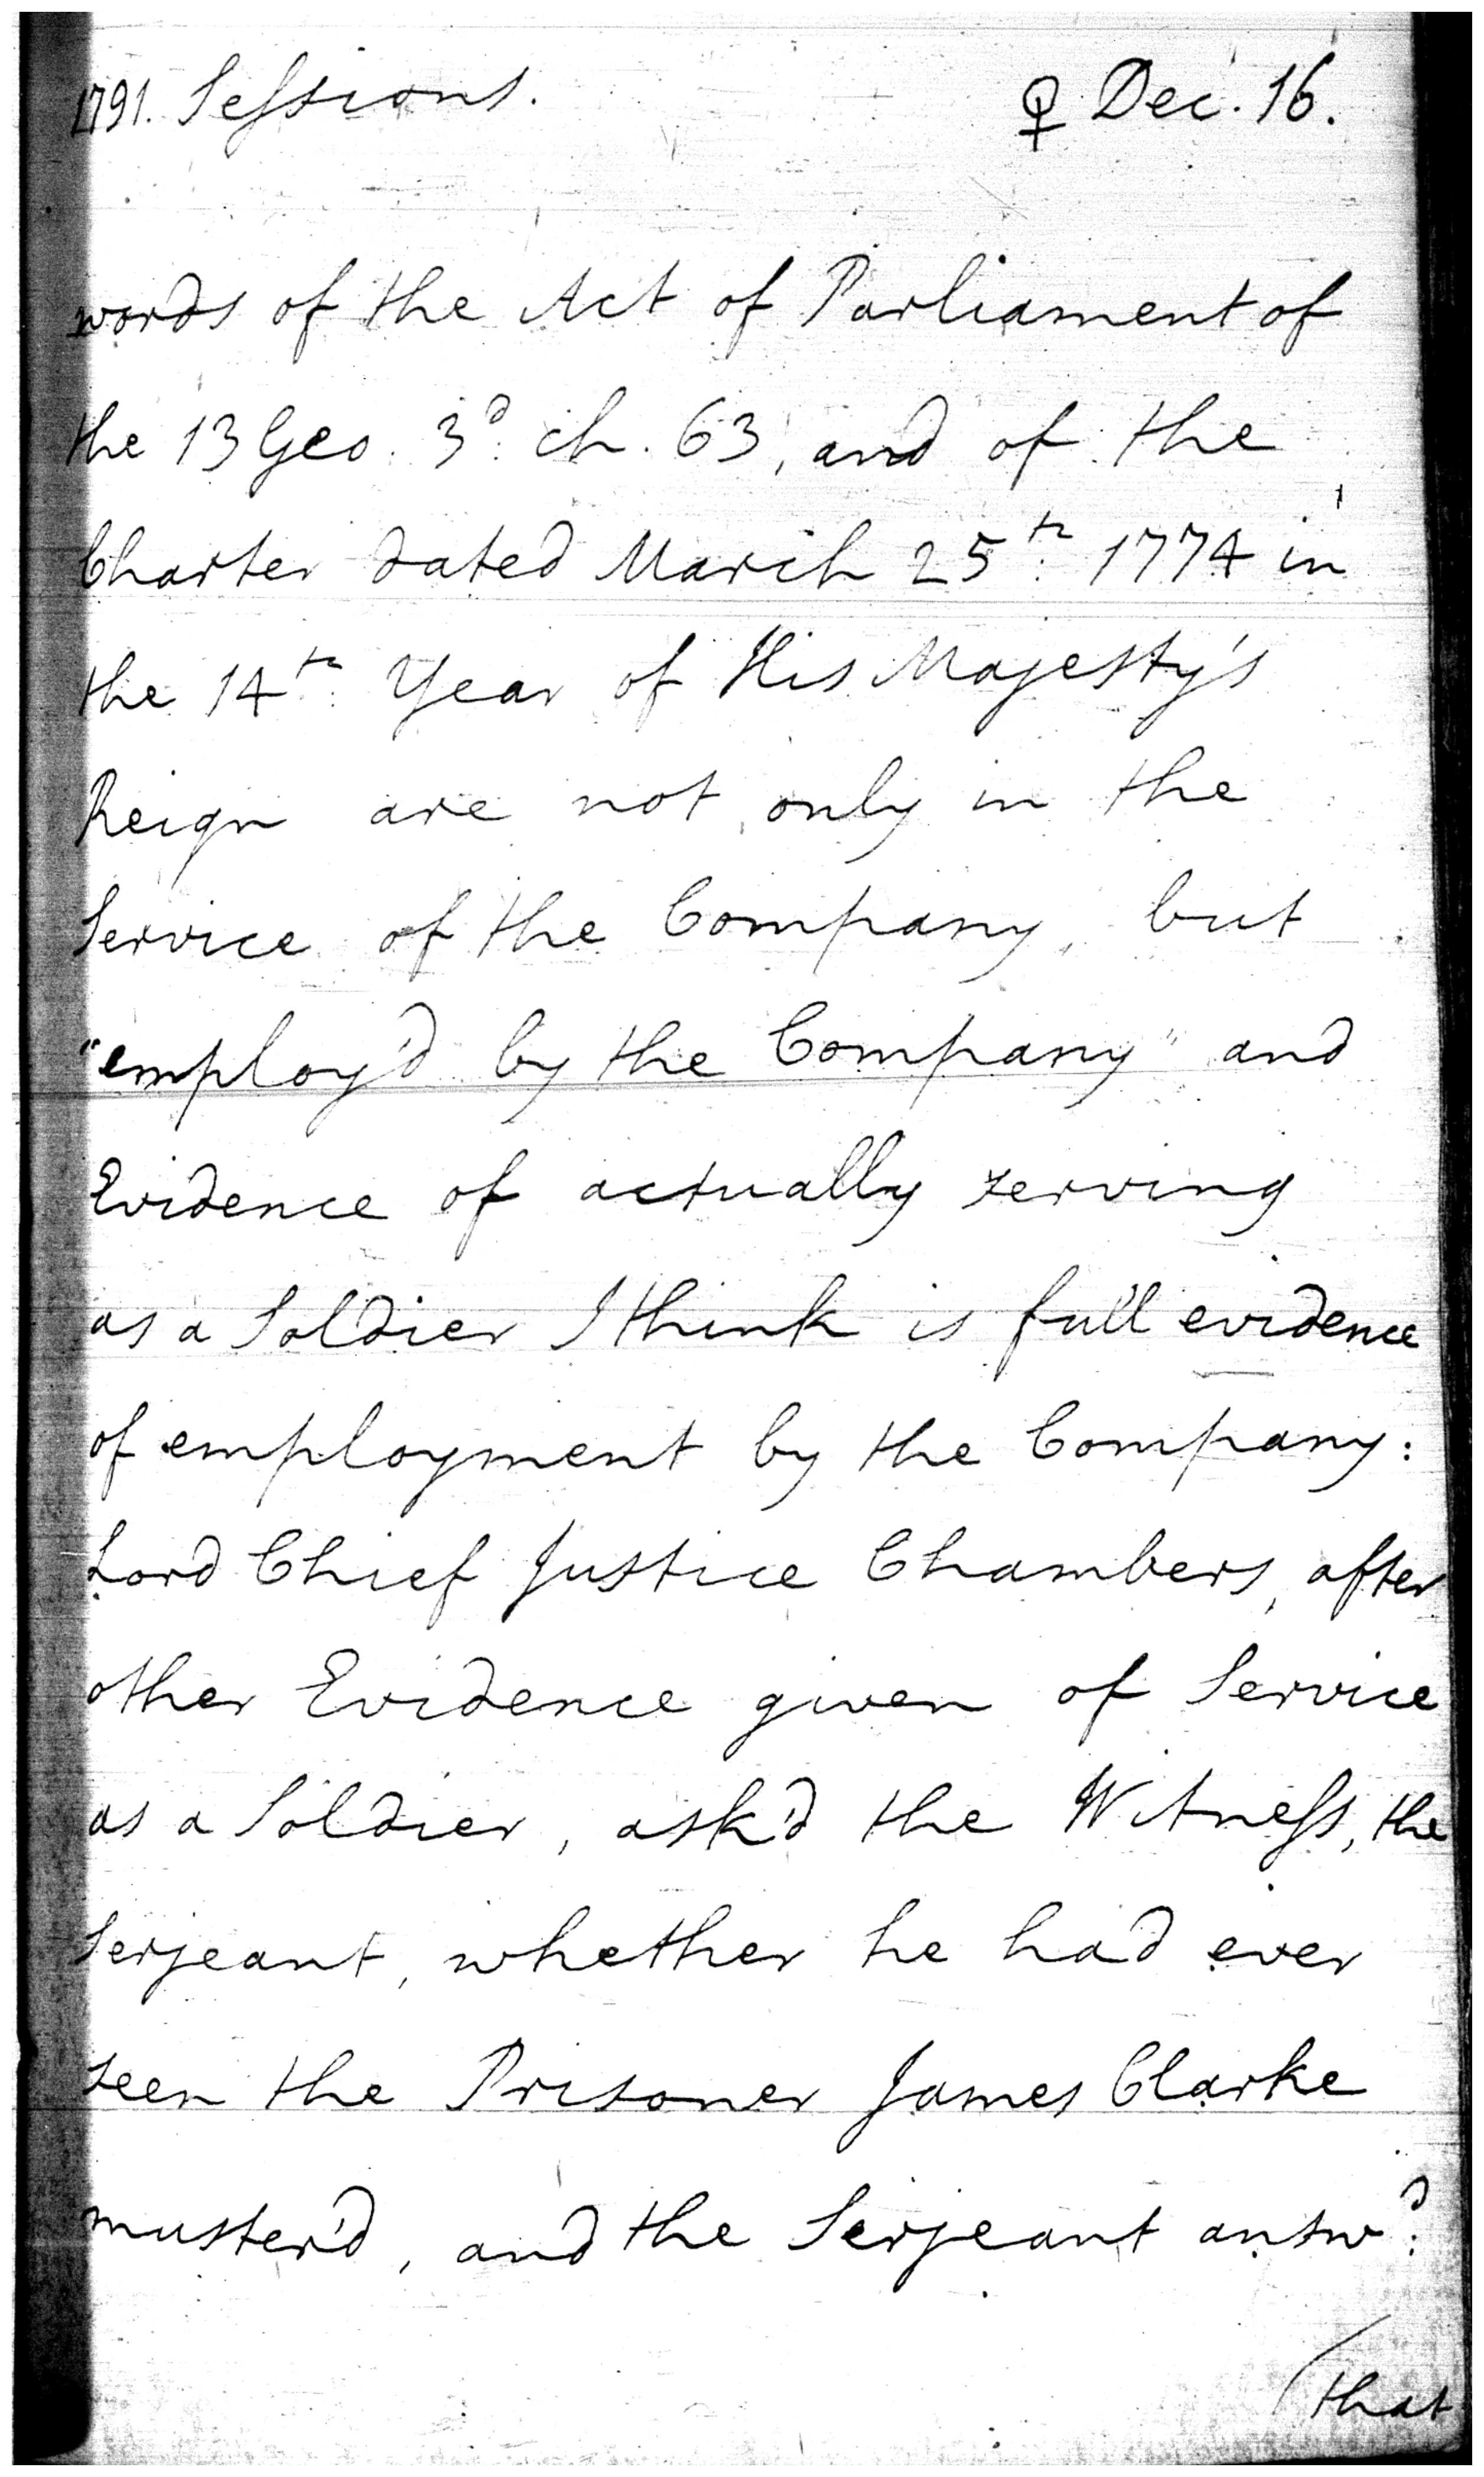 1791. Sessions. ♀ Dec. 16.
words of the Act of Parliament of
the 13 Geo. 3d. ch. 63, and of the
Charter dated March 25th. 1774 in
the 14th. Year of His Majesty's
Reign are not only in the
Service of the Company, but
"employ'd by the Company" and
Evidence of actually serving
as a Soldier I think is full evidence
of employment by the Company:
Lord Chief Justice Chambers, after
other Evidence given of Service
as a Soldier, ask'd the Witness, the
Serjeant, whether he had ever
seen the Prisoner James Clarke
muster'd, and the Serjeant answd.
/that